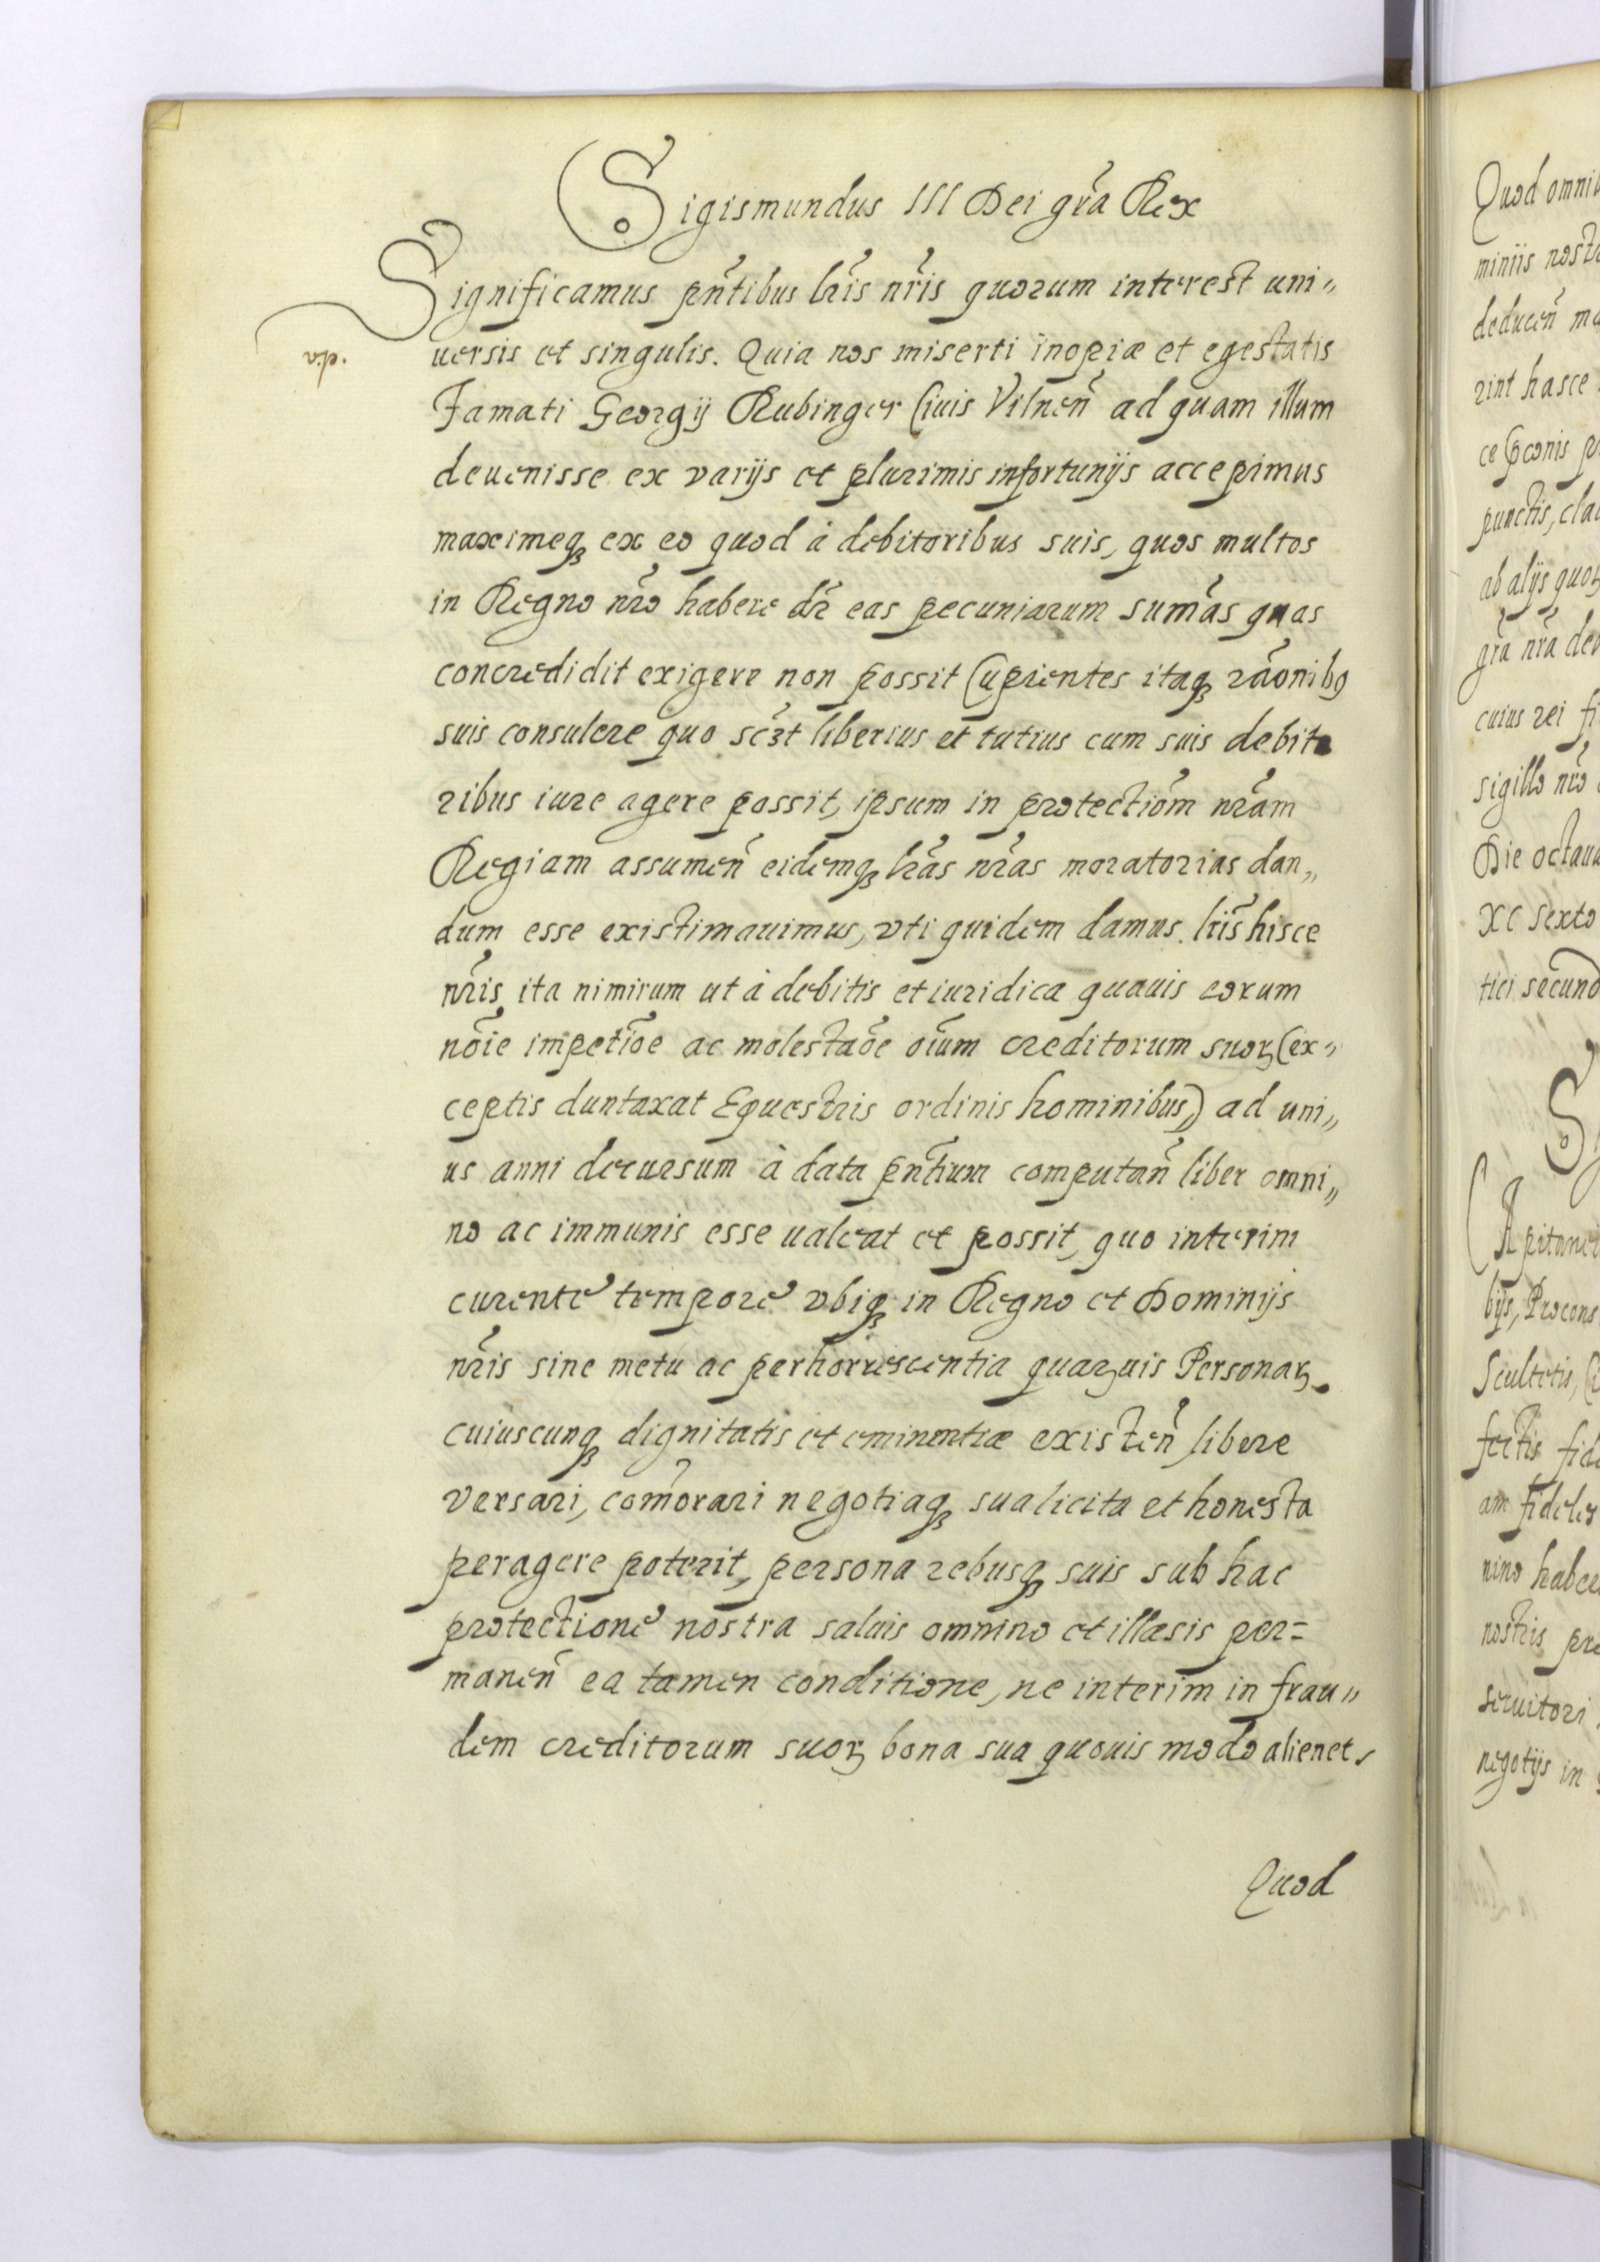 Sigismundus III Dei gr̃a Rex
Significamus pñtibus lr̃is nr̃is quorum interest uni„
uersis et singulis. Quia nos miserti inopiæ et egestatis
Famati Georgij Rubinger Ciuis Vilneñ ad quam illum
deuenisse ex varijs et plurimis infortunijs accepimus
maximeqꝫ ex eo quod à debitoribus suis, quos multos
in Regno nr̃o habere dr̃ eas pecuniarum sum̃as quas
concredidit exigere non possit Cupientes itaqꝫ rãonibꝯ
suis consulere quo scꝫt liberius et tutius cum suis debito
ribus iure agere possit, ipsum in protectiõm nr̃am
Regiam assumeñ eidemqꝫ lr̃as nr̃as moratorias dan„
dum esse existimauimus, vti quidem damus lr̃is hisce
nr̃is ita nimirum ut à debitis et iuridica quauis eorum
nõie impetiõe ac molestaõe oĩum creditorum suorꝫ (ex„
ceptis duntaxat Equestris ordinis hominibus,) ad uni„
us anni decursum à data pñtium computañ liber omni„
no ac immunis esse ualeat et possit, quo interim
curente tempore vbiqꝫ in Regno et Dominijs
nr̃is sine metu ac perhorrescentia quarꝫuis Personarꝫ
cuiuscunqꝫ dignitatis et eminentiæ existeñ libere
versari, com̃orari negotiaqꝫ sua licita et honesta
peragere poterit, persona rebusqꝫ suis sub hac
protectione nostra saluis omnino et illæsis per=
maneñ ea tamen conditione, ne interim in frau„
dem creditorum suorꝫ bona sua quouis modo alienet,
Quod
Quod omni
miniis nost
deduceñ
rint hasce
punctis,
ab alijs quorꝫ
gr̃a nr̃a
cuius rei
sigillo nr̃o
Die octaua
XC sexto
tici secund
bijs, Procons
Scultetis,
fectis
am fideles
nino
nostris
seruitori
negotijs in